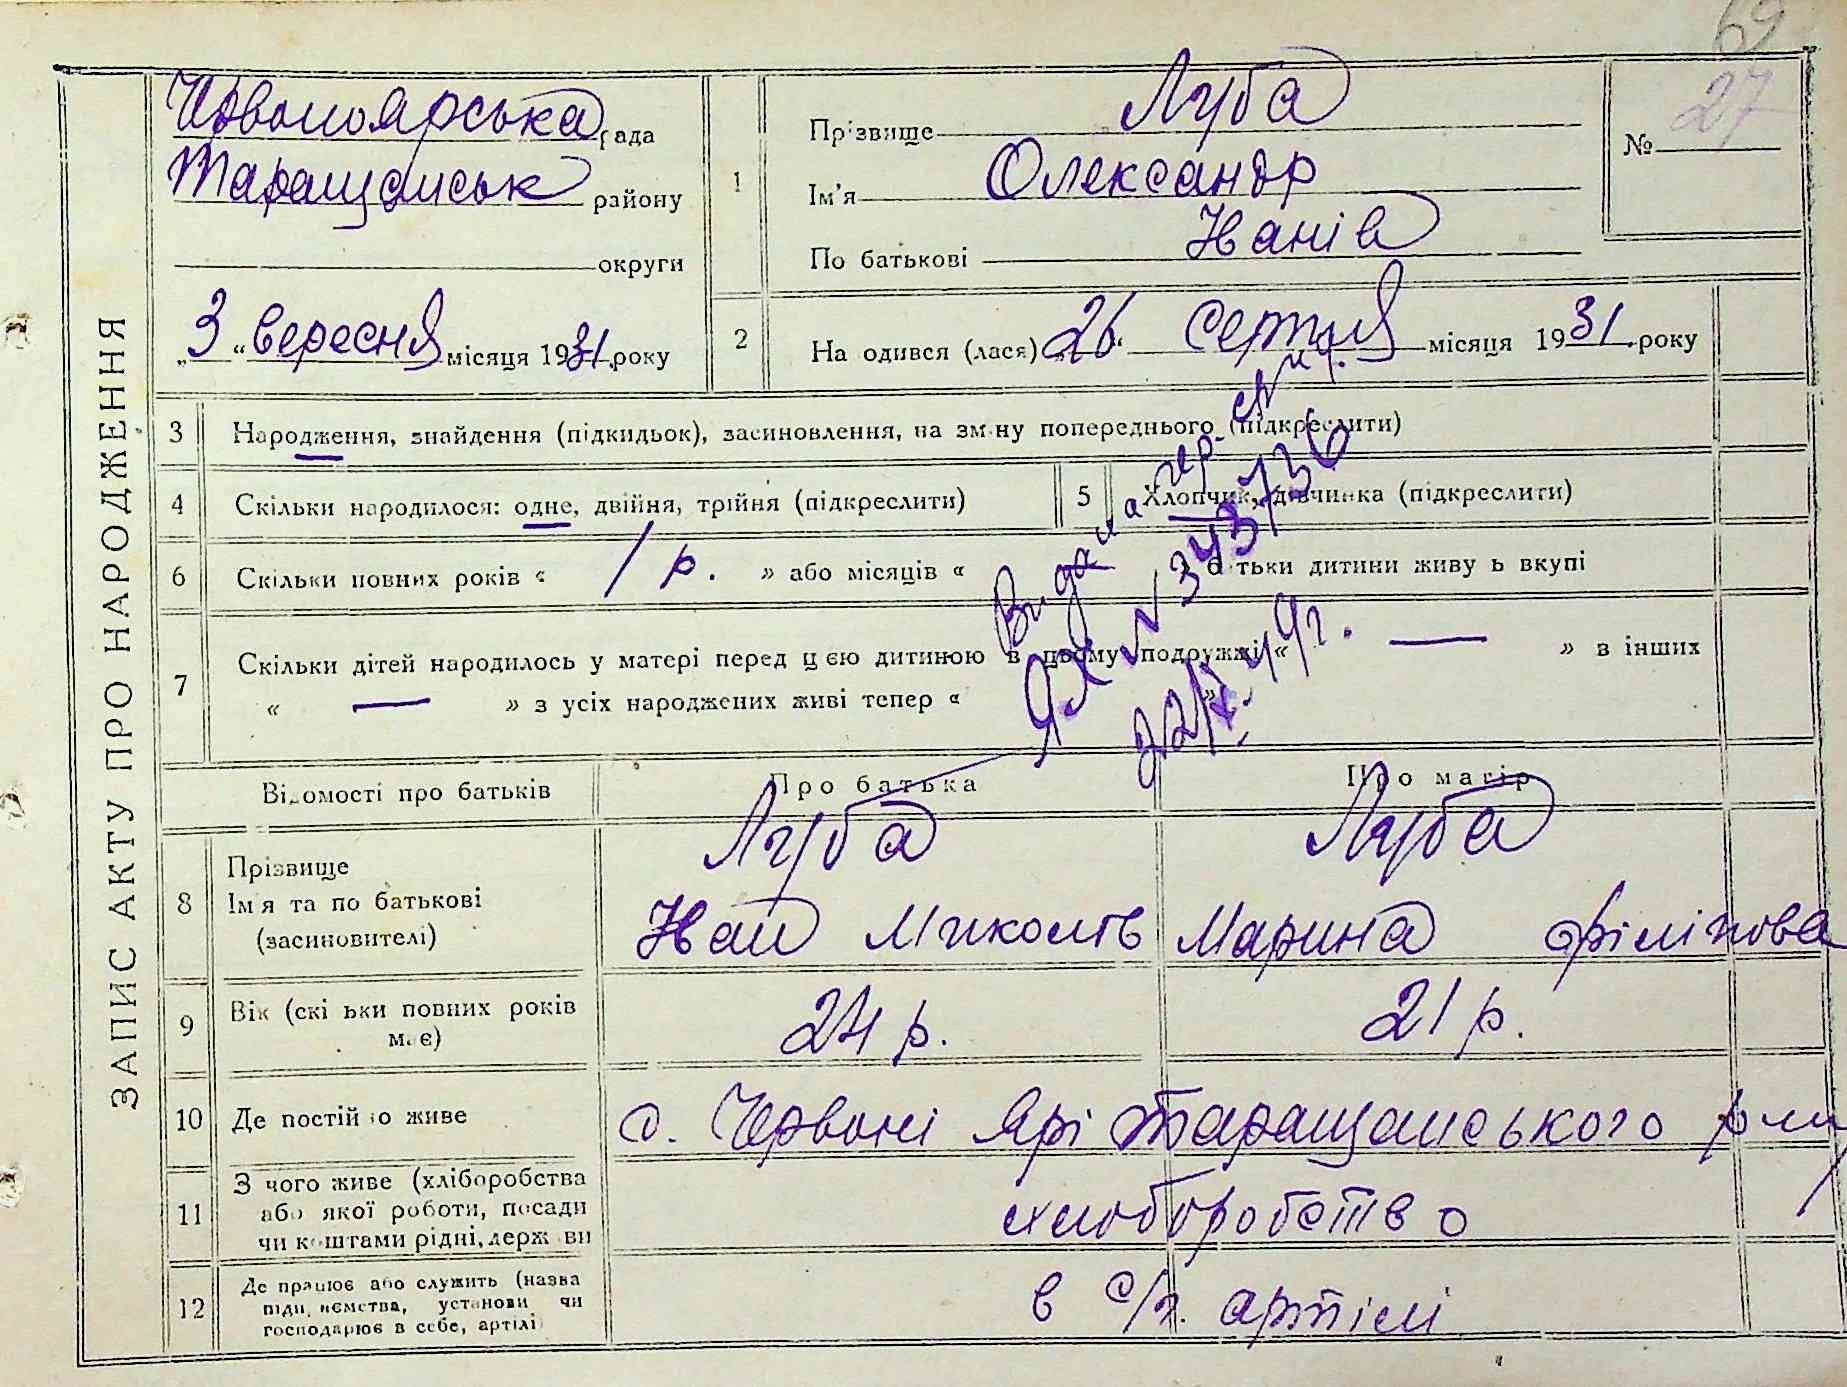 69
ЗАПИС АКТУ ПРО НАРОДЖЕННЯ
Червоноярська рада
Таращанськ району
округи
„3“ вересня місяця 1931 року
1
Прізвище Луба
Ім'я Олександр
По батькові Іванів
№ 27
2
На одився (лася) „26“ серпня місяця 1931 року
3 Народження, знайдення (підкидьок), засиновлення, на зміну попереднього (підкреслити)
4 Скільки народилося: одне, двійня, трійня (підкреслити)
5 Хлопчик, дівчинка (підкреслити)
6 Скільки повних років « 1 р. » або місяців « » б тьки дитини живу ь вкупі
7 Скільки дітей народилось у матері перед цією дитиною в цьому подружжі « — » в інших
« — » з усіх народжених живі тепер « »
Видана
ЯХ № 343736
Відомості про батьків
Про батька
Про матір
8
Прізвище
Ім'я та по батькові
(засиновителі)
Луба
Іван Миколів
Луба
Марина Філіпова
9
Вік (скі ьки повних років
має)
24 р.
21 р.
10 Де постій о живе
с. Червоні Ярі Таращанського р-ну
11
З чого живе (хліборобства
або якої роботи, посади
чи коштами рідні, держ ви
хліборобство
12
Де працює або служить (назва
підп иємства, установи чи
господарює в себе, артілі
в с/г. артілі